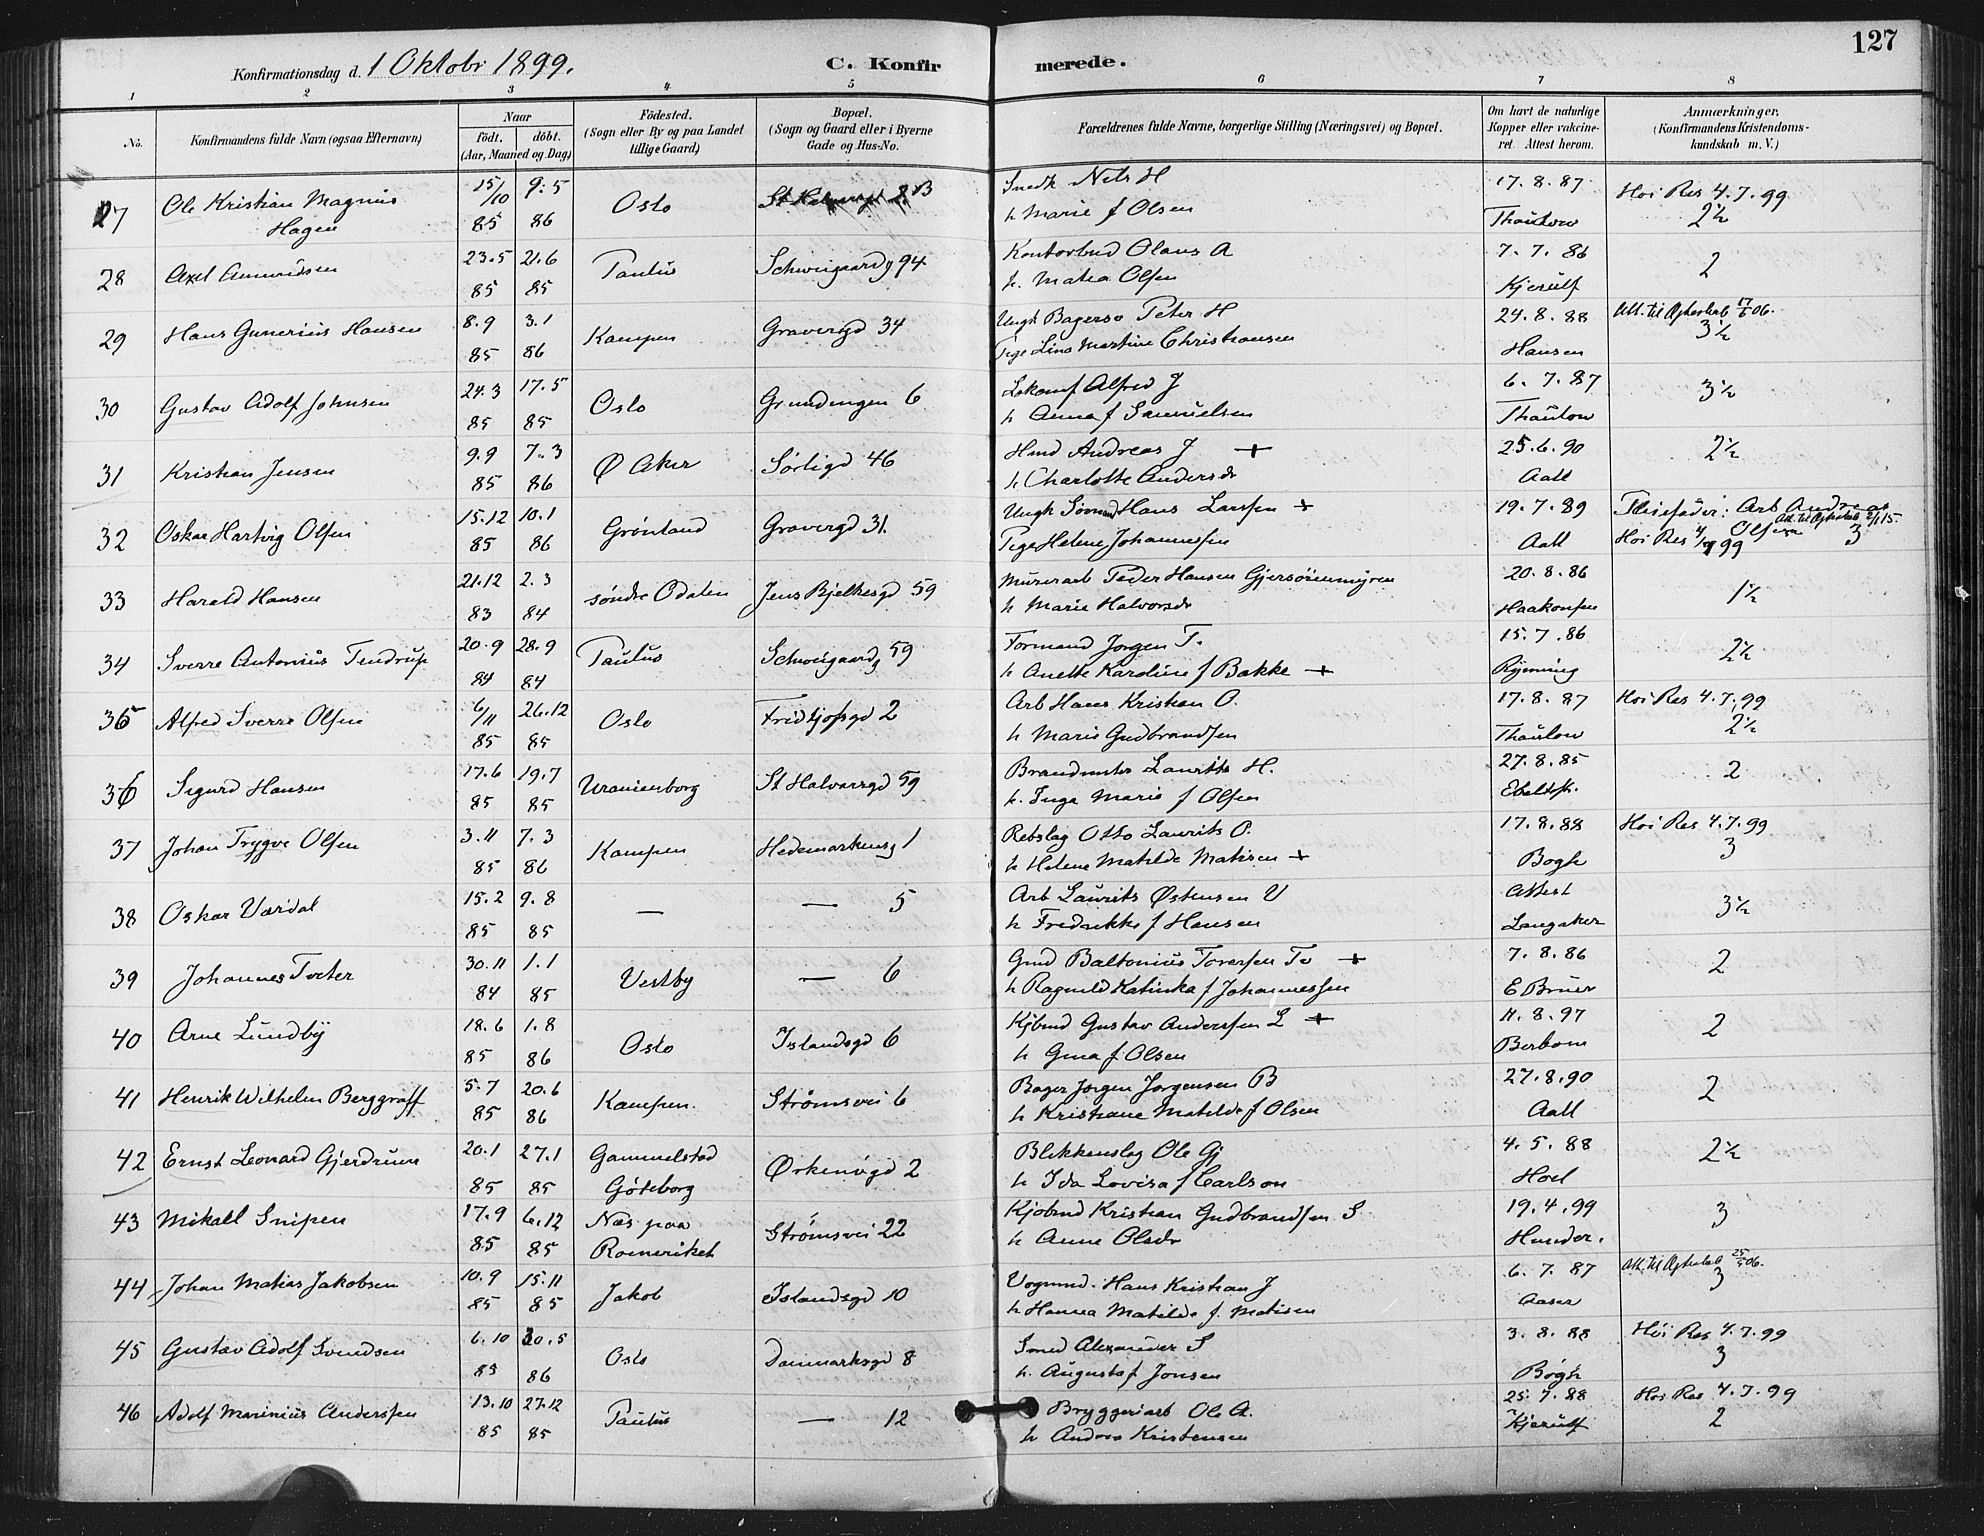 127
Konfirmationsdag d. 1 Oktobr 1899. C. Konfirmerede.
1 2 3 4 5 6 7 8
No. Konfirmandens fulde Navn (ogsaa Efternavn) Naar födt. döbt. (Aar, Maaned og Dag) Födested. (Sogn eller By og paa Landet tillige Gaard) Bopæl. (Sogn og Gaard eller i Byerne Gade og Hus-No. Forældrenes fulde Navne, borgerlige Stilling (Næringsvei) og Bopæl. Om havt de naturlige Kopper eller vakcineret. Attest herom. Anmærkninger. (Konfirmandens Kristendomskundskab m. V.)
27 Ole Kristian Magnus 15/10 9.5 Oslo 8 B Snedk Nels H 17.8.87 Hoi Res 4.7.99
Hagen 85 86 h Marie f Olsen Thaulow 2½
28 Axel Amundsen 23.5 21.6 Paulus Schweigaardg 94 Kontorbud Olaus A 7.7.86 2
85 85 h. Matea Olsen Kjerulf
29 Hans Gunerius Hansen 8.9 3.1 Kampen Gravergd 34 Ungk Bagersv Peter H 24.8.88 Att. til Ægteskab 17/6 06.
85 86 Pige Lina Martine Christiansen Hansen 3½
30 Gustav Adolf Johnsen 24.3 17.5 Oslo Grundingen 6 Lokomf Alfred J 6.7.87 3½
85 85 h Anna f Samuelsen Thaulow
31 Kristian Jensen 9.9 7.3 Ø Aker Sörligd 46 Hmd Andreas J + 25.6.90 2½
85 86 h Charlotte Andersdr Aall
32 Oskar Hartvig Olsen 15.12 10.1 Grönland Gravergd 31. Ungk Sömand Hans Larssen + 19.7.89 Pleiefader: Arb Andreas
85 86 Pige Helene Johannessen Aall Olsen Att. til Ægteskab 2/1 15.
Hoi Res 4/7 99 3
33 Harald Hansen 21.12 2.3 söndre Odalen Jens Bjelkesgd 59 Murerarb Peder Hansen Gjersöienmyren 20.8.86 1½
83 84 h Marie Halvorsdr Haakonsen
34 Sverre Antonius Tendrup 20.9 28.9 Paulus Schweigaardg 59 Formand Jorgen T. 15.7.86 2½
84 84 h Anette Karoline f Bakke + Ryenning
35 Alfred Sverre Olsen 6/11 26.12 Oslo Fridtjofsgd 2 Arb Hans Kristian O. 17.8.87 Hoi Res 4.7.99
85 85 h Marie Gudbrandsen Thaulow 2½
36 Sigurd Hansen 17.6 19.7 Uranienborg St Halvorsgd 59 Brandmster Lauritz H. 27.8.85 2
85 85 h. Inga Marie f Olsen
37 Johan Trygve Olsen 3.11 7.3 Kampen Hedemarkensg 1 Rebslag Otto Laurits O. 17.8.88 Hoi Res 4.7.99
85 86 h Helene Matilde Matisen + Bogh 3
38 Oskar Værdal 15.2 9.8 — — 5 Arb Laurits Østensen V Attest 3½
85 85 h Fredrikke f Hansen Langaker
39 Johannes Tveter 30.11 1.1 Vestby — 6 Gmd Baltonius Toresen Tv + 7.8.86 2
84 85 h Ragnild Katinka f Johannessen E Brüer
40 Arne Lundby 18.6 1.8 Oslo Islandsgd 6 Kjbmd Gustav Anderssen L + 11.8.97 2
85 86 h Gina f Olsen Berbom
41 Henrik Wilhelm Berggraff 5.7 20.6 Kampen. Strömsvei 6 Bager Jørgen Jorgensen B 27.8.90 2
85 86 h Kristiane Matilde f Olsen Aall
42 Ernst Leonard Gjerdrum 20.1 27.1 Gammelstad Ørkenögd 2 Blikkenslag Ole Gj 4.5.88 2½
85 85 Göteborg h Ida Lovisa f Carlson Hoel
43 Mikall Snipen 17.9 6.12 Næs paa Strömsvei 22 Kjobmd Kristian Gudbrandsen S 19.4.99 3
85 85 Romeriket h Anne Olsdr Hunder.
44 Johan Matias Jakobsen 10.9 15.11 Jakob Islandsgd 10 Vognmd. Hans Kristian J 6.7.87 Att. til Ægteskab 25/5 06.
85 85 h Hanna Matilde f. Matisen Aaser 3
45 Gustav Adolf Svendsen 6.10 30.5 Oslo Danmarksgd 8 Smed Alexander S 3.8.88 Hoi Res 4.7.99
85 86 h. Augusta f Jonsen Bogh 3
46 Adolf Marinius Anderssen 13.10 27.12 Paulus — 12 Bryggeriarb Ole A. 25.7.88 Hoi Res 4.7.99
85 85 h Andrea Kristensen Kjerulf 2